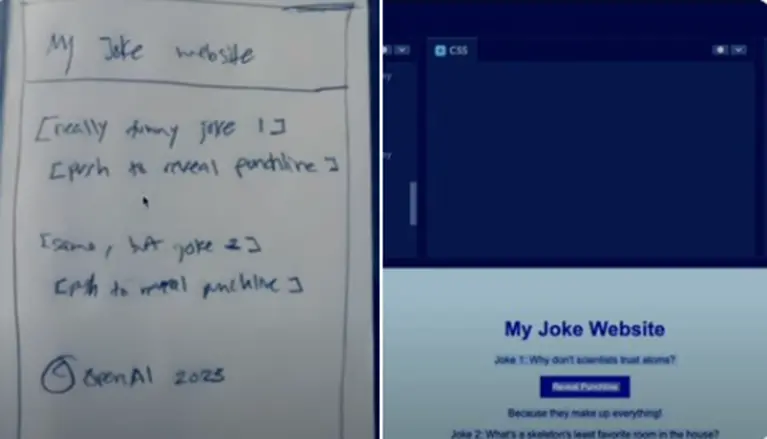 My Joke website
[really funny joke 1]
[push to reveal punchline]
[same, but joke 2]
[push to reveal punchline]
© OpenAI 2023
CSS
My Joke Website
Joke 1: Why don't scientists trust atoms?
Reveal Punchline
Because they make up everything!
Joke 2: What's a skeleton's least favorite room in the house?